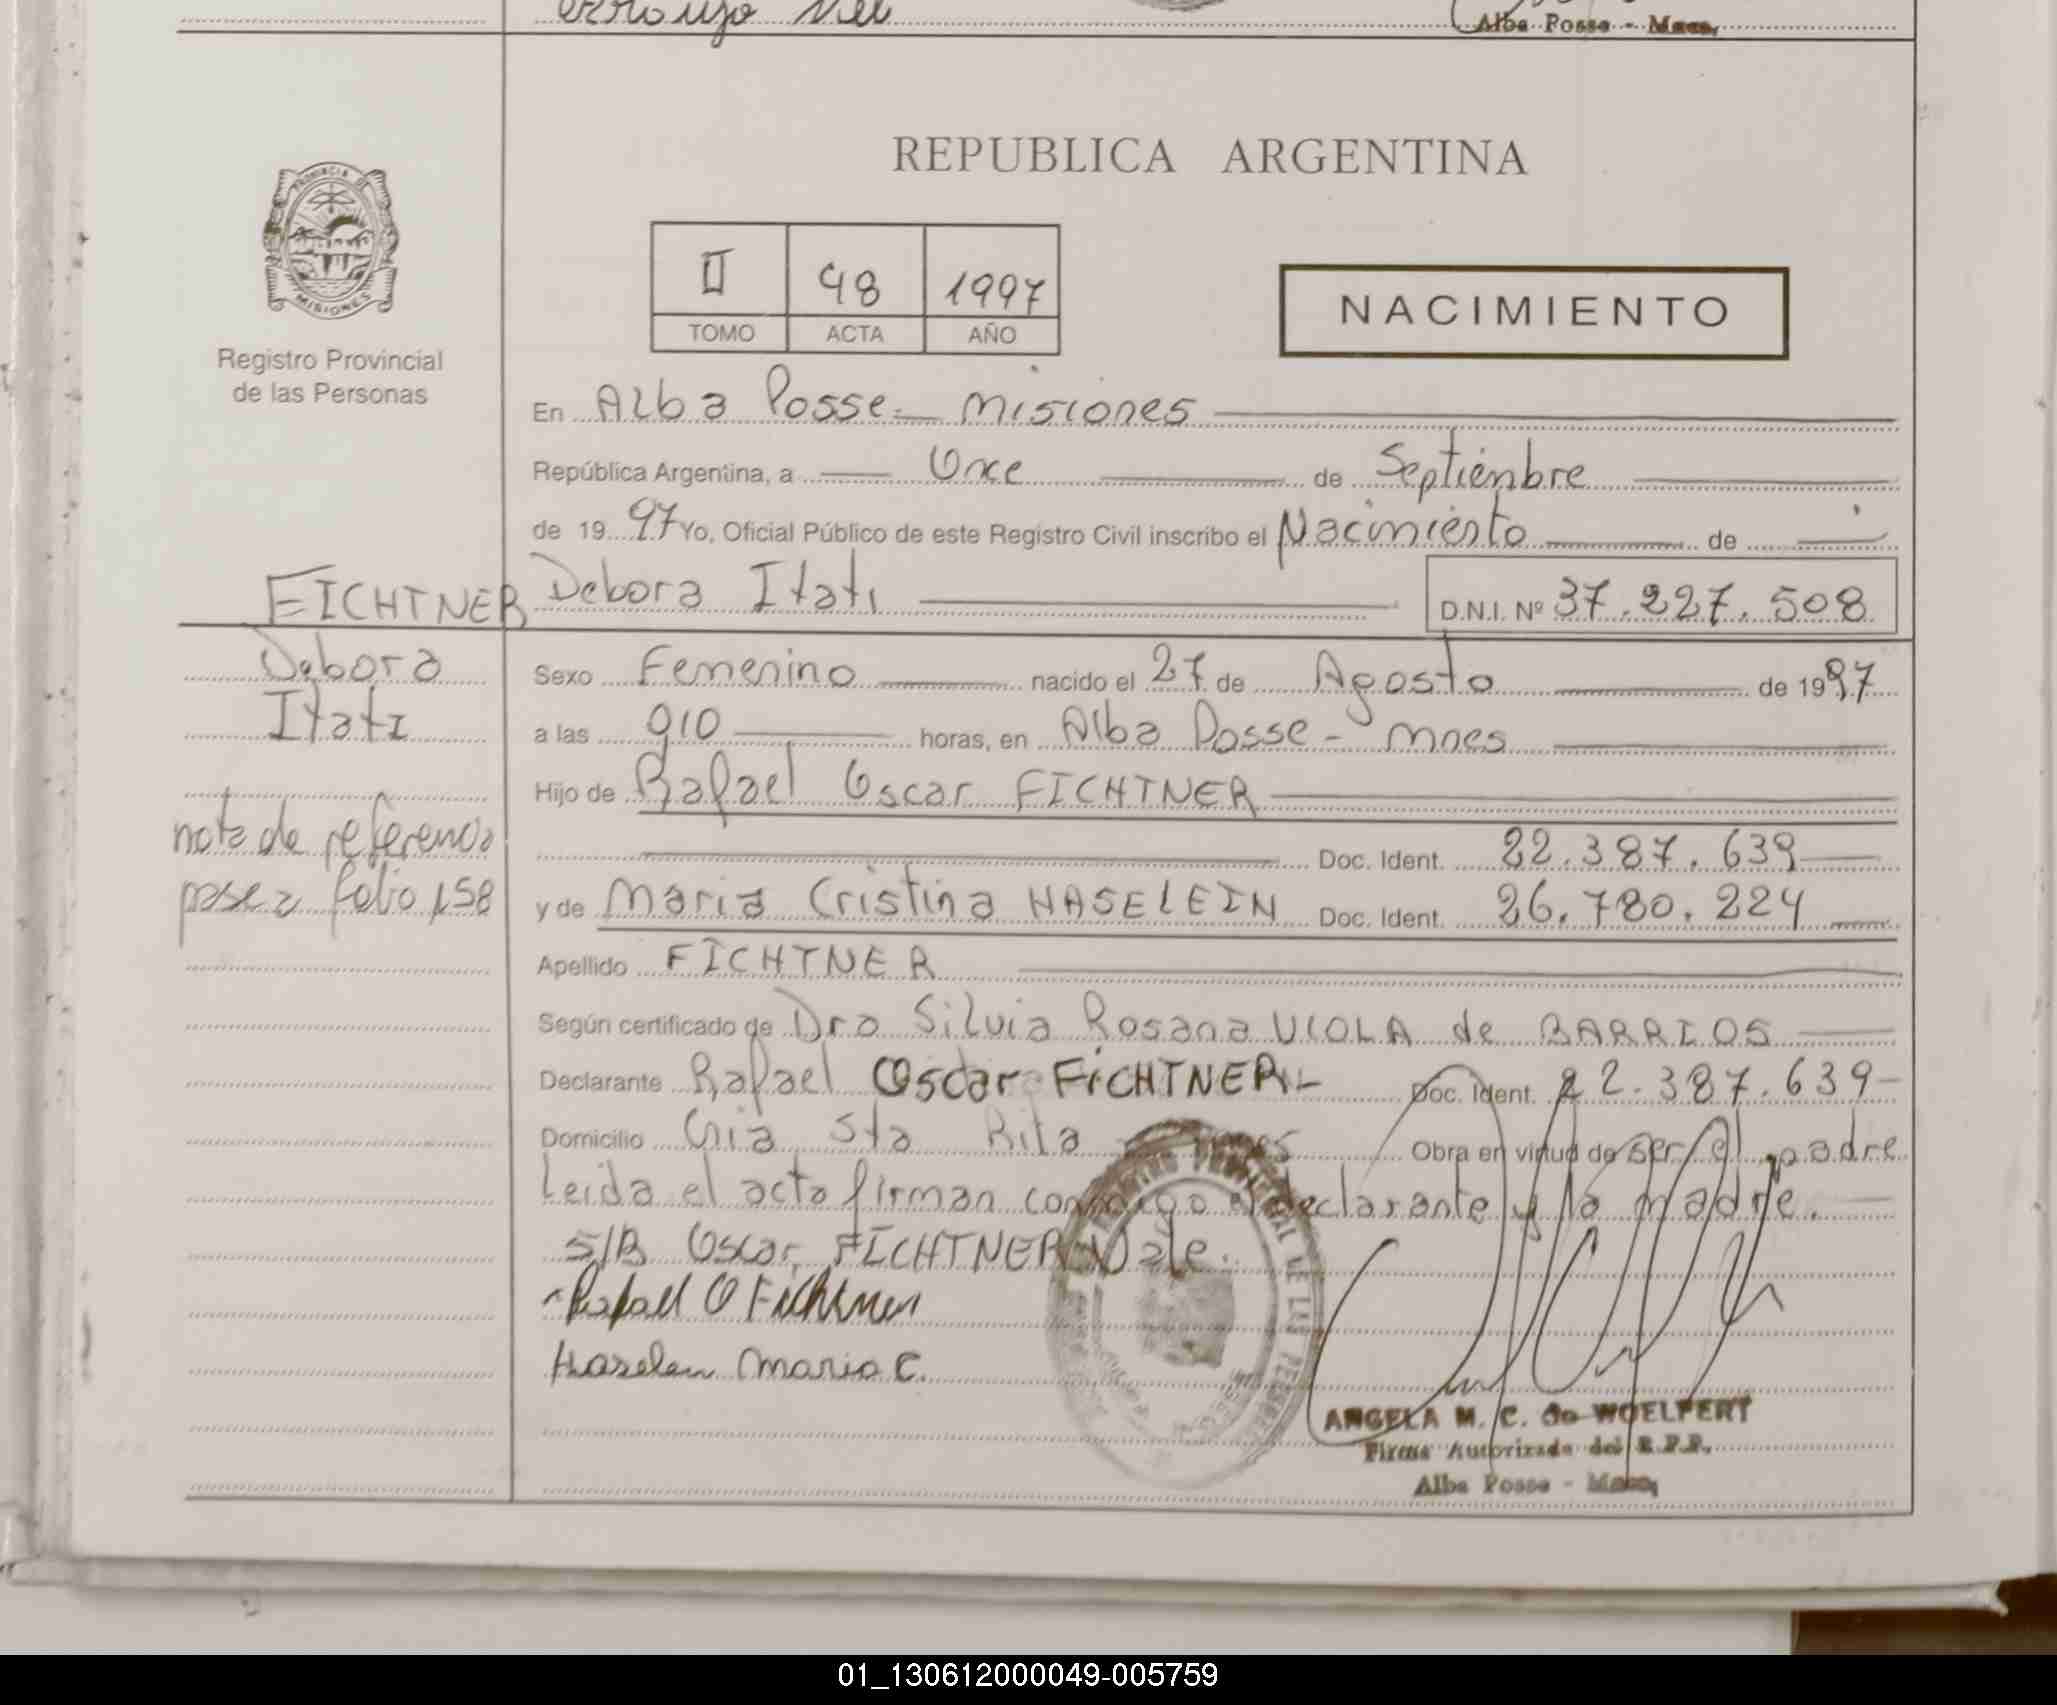 Alba Posse - Mnes,
REPUBLICA ARGENTINA
PROVINCIA DE
MISIONES
Registro Provincial
de las Personas
II 48 1997
TOMO ACTA AÑO
NACIMIENTO
En Alba Posse - Misiones
República Argentina, a Once de Septiembre
de 19 97 Yo, Oficial Público de este Registro Civil inscribo el Nacimiento de
FICHTNER Debora Itati D.N.I. Nº 37.227.508
Debora
Itati
nota de referencia
pase a folio 158
Sexo Femenino nacido el 27 de Agosto de 1997
a las 010 horas, en Alba Posse - Mnes
Hijo de Rafael Oscar FICHTNER
Doc. Ident. 22.387.639
y de Maria Cristina HASELEIN Doc. Ident. 26.780.224
Apellido FICHTNER
Según certificado de Dra Silvia Rosana VIOLA de BARRIOS
Declarante Rafael Oscar FiCHTNER Doc. Ident. 22.387.639
Domicilio Cnia Sta Rita Obra en virtud de ser el padre
Leida el acta firman conmigo el declarante y la madre.
S/B Oscar, FICHTNER Vale.
Rafael O Fichtner
Haselein Maria C.
ANGELA M. C. de WOELFERT
Firma Autorizada del R.P.P.
Alba Posse - Mnes,
01_130612000049-005759